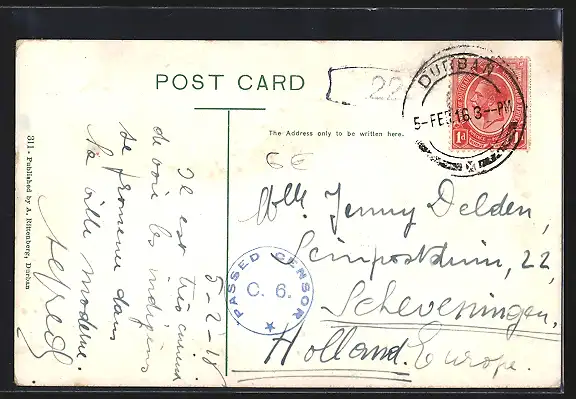 POST CARD
22
DURBAN
5-FEB 16 3--PM
1d
The Address only to be written here.
6E
Mlle. Jenny Delden,
Seinpostduin, 22,
Scheveningen,
Holland. Europe.
PASSED CENSOR
C. 6.
5-2-16
Il est très curieux
de voir les indigènes
se promener dans
la ville moderne.
Alfred
311- Published by A. Rittenberg, Durban